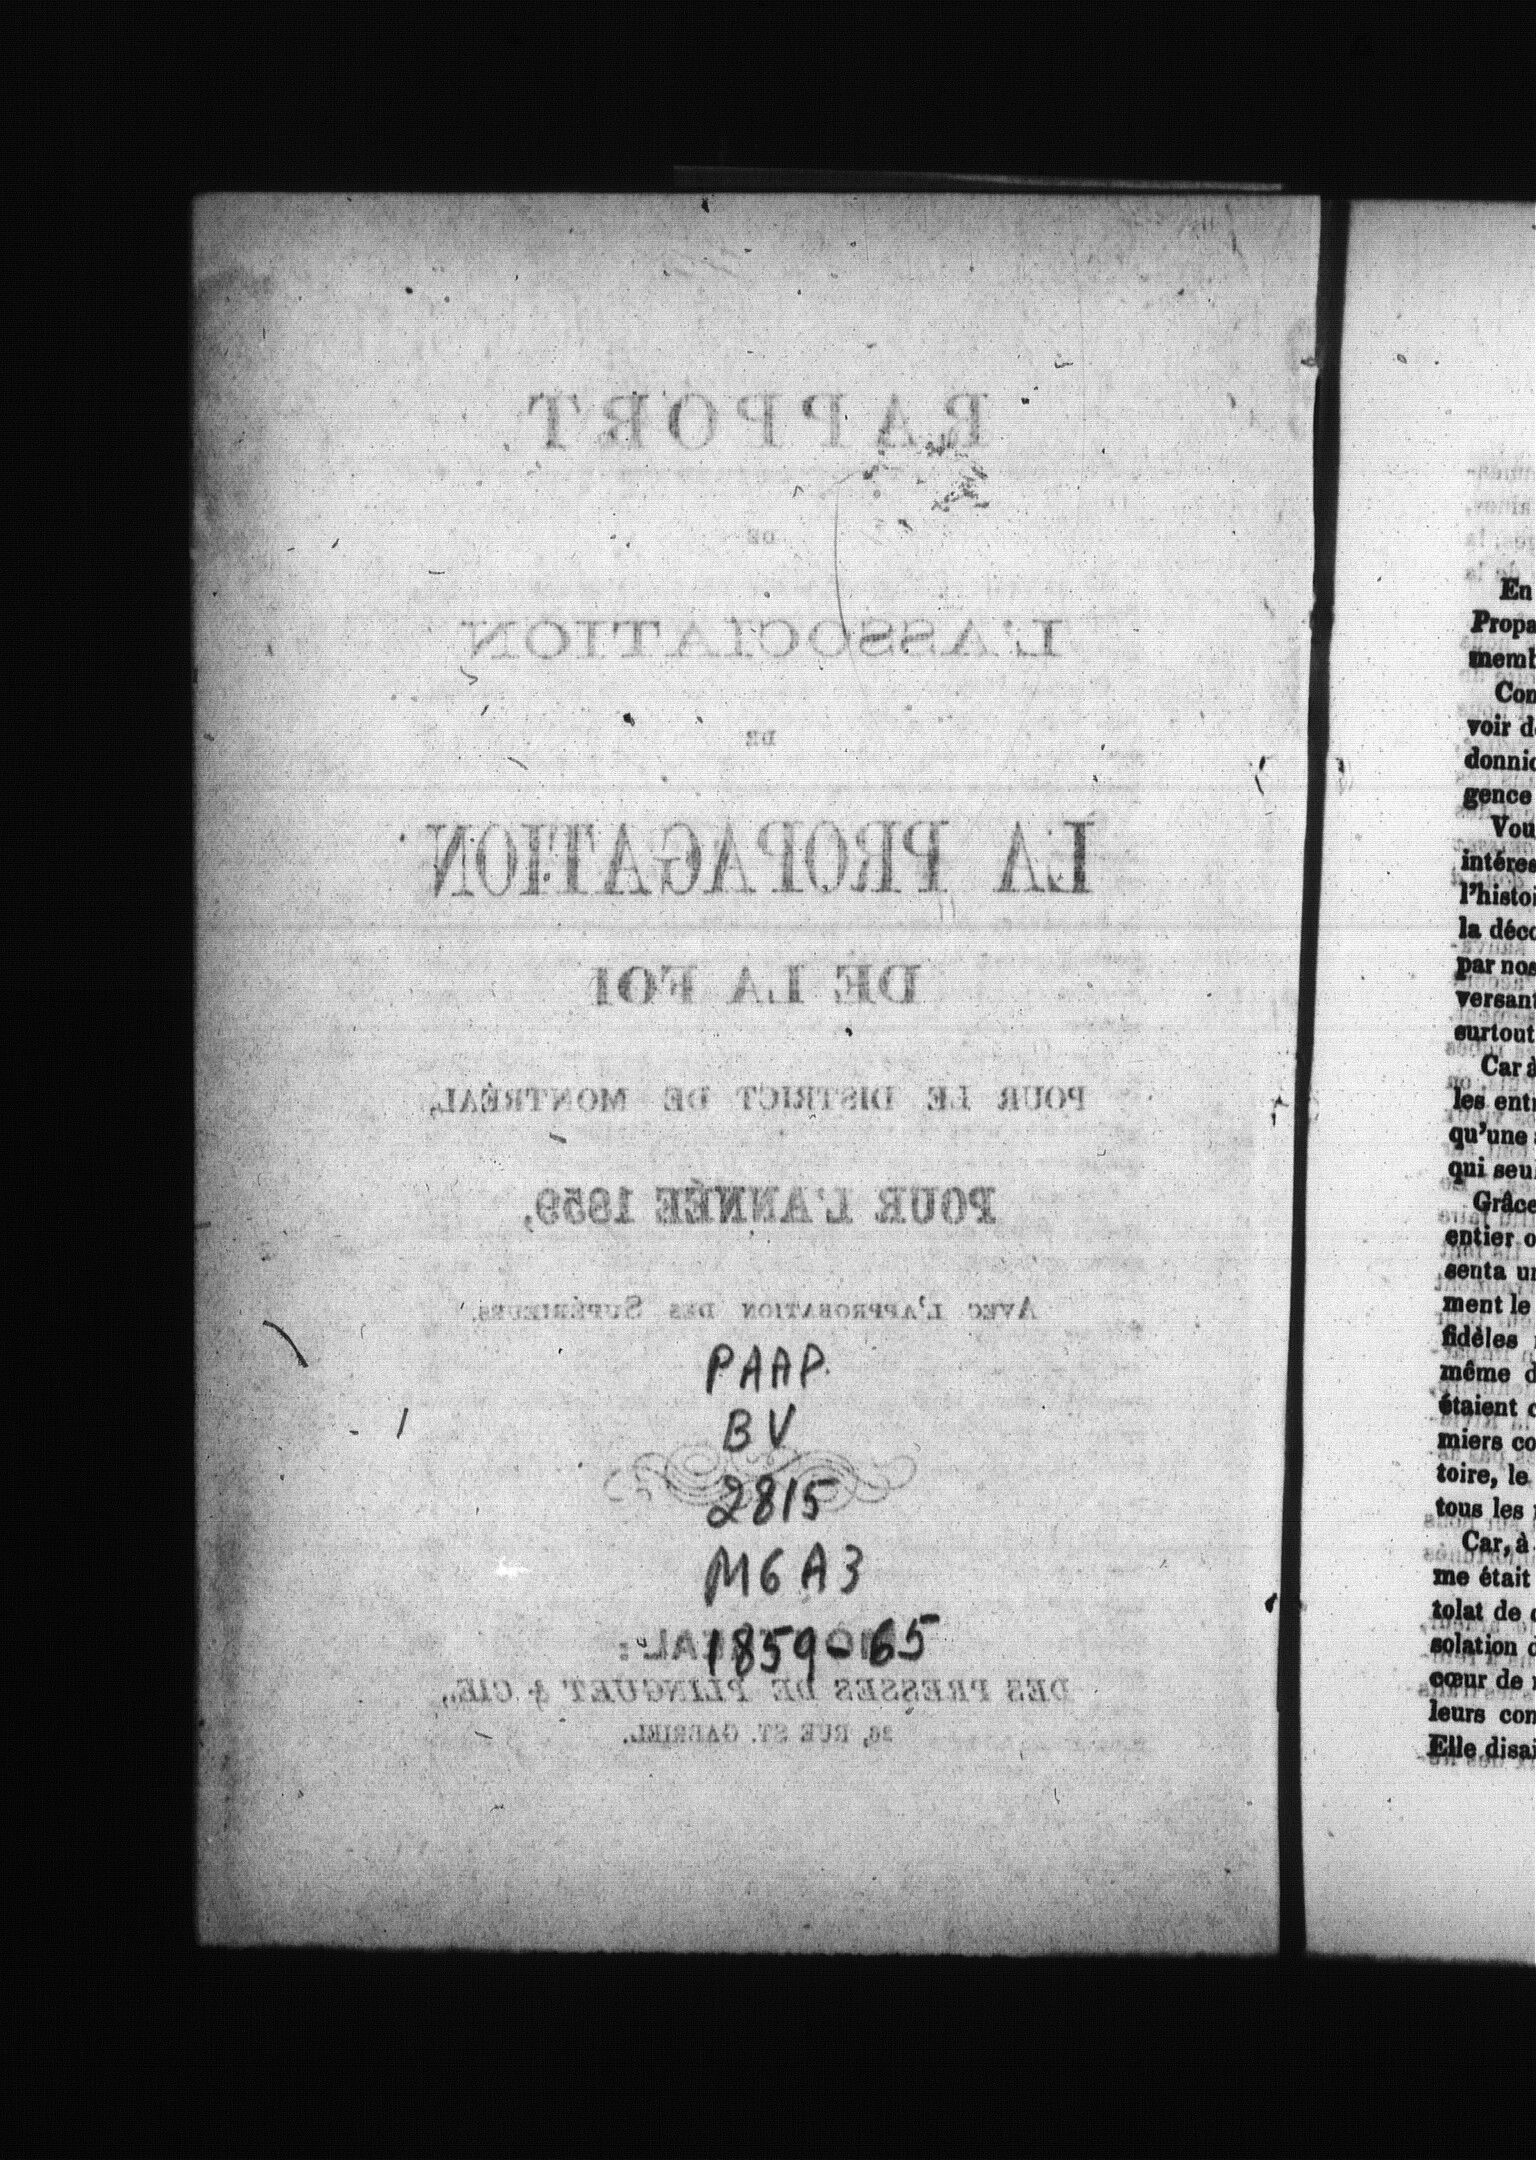 RAPPORT
DE
L'ASSOCIATION
DE
LA PROPAGATION
DE LA FOI
POUR LE DISTRICT DE MONTRÉAL,
POUR L'ANNÉE 1859,
AVEC L'APPROBATION DES SUPÉRIEURS.
PAAP
BV
2815
M6A3
1859-65
MONTRÉAL:
DES PRESSES DE PLINGUET & CIE.,
36, RUE ST. GABRIEL.
En
Propa
memb
Con
voir de
donnic
gence
Vou
intéres
l'histoi
la déco
par nos
versant
surtout
Car à
les entr
qu'une s
qui seul
Grâce
entier o
senta un
ment le
fidèles
même d
étaient c
miers co
toire, le
tous les
Car, à
me était
tolat de c
solation d
cœur de
leurs con
Elle disai